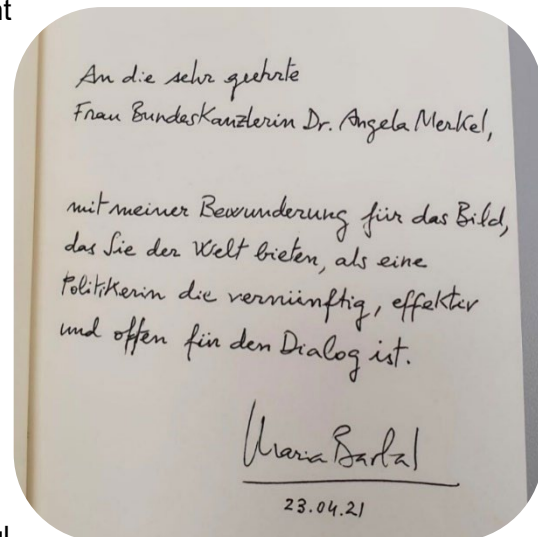 An die sehr geehrte
Frau Bundeskanzlerin Dr. Angela Merkel,
mit meiner Bewunderung für das Bild,
das Sie der Welt bieten, als eine
Politikerin die vernünftig, effektiv
und offen für den Dialog ist.
Maria Barbal
23.04.21